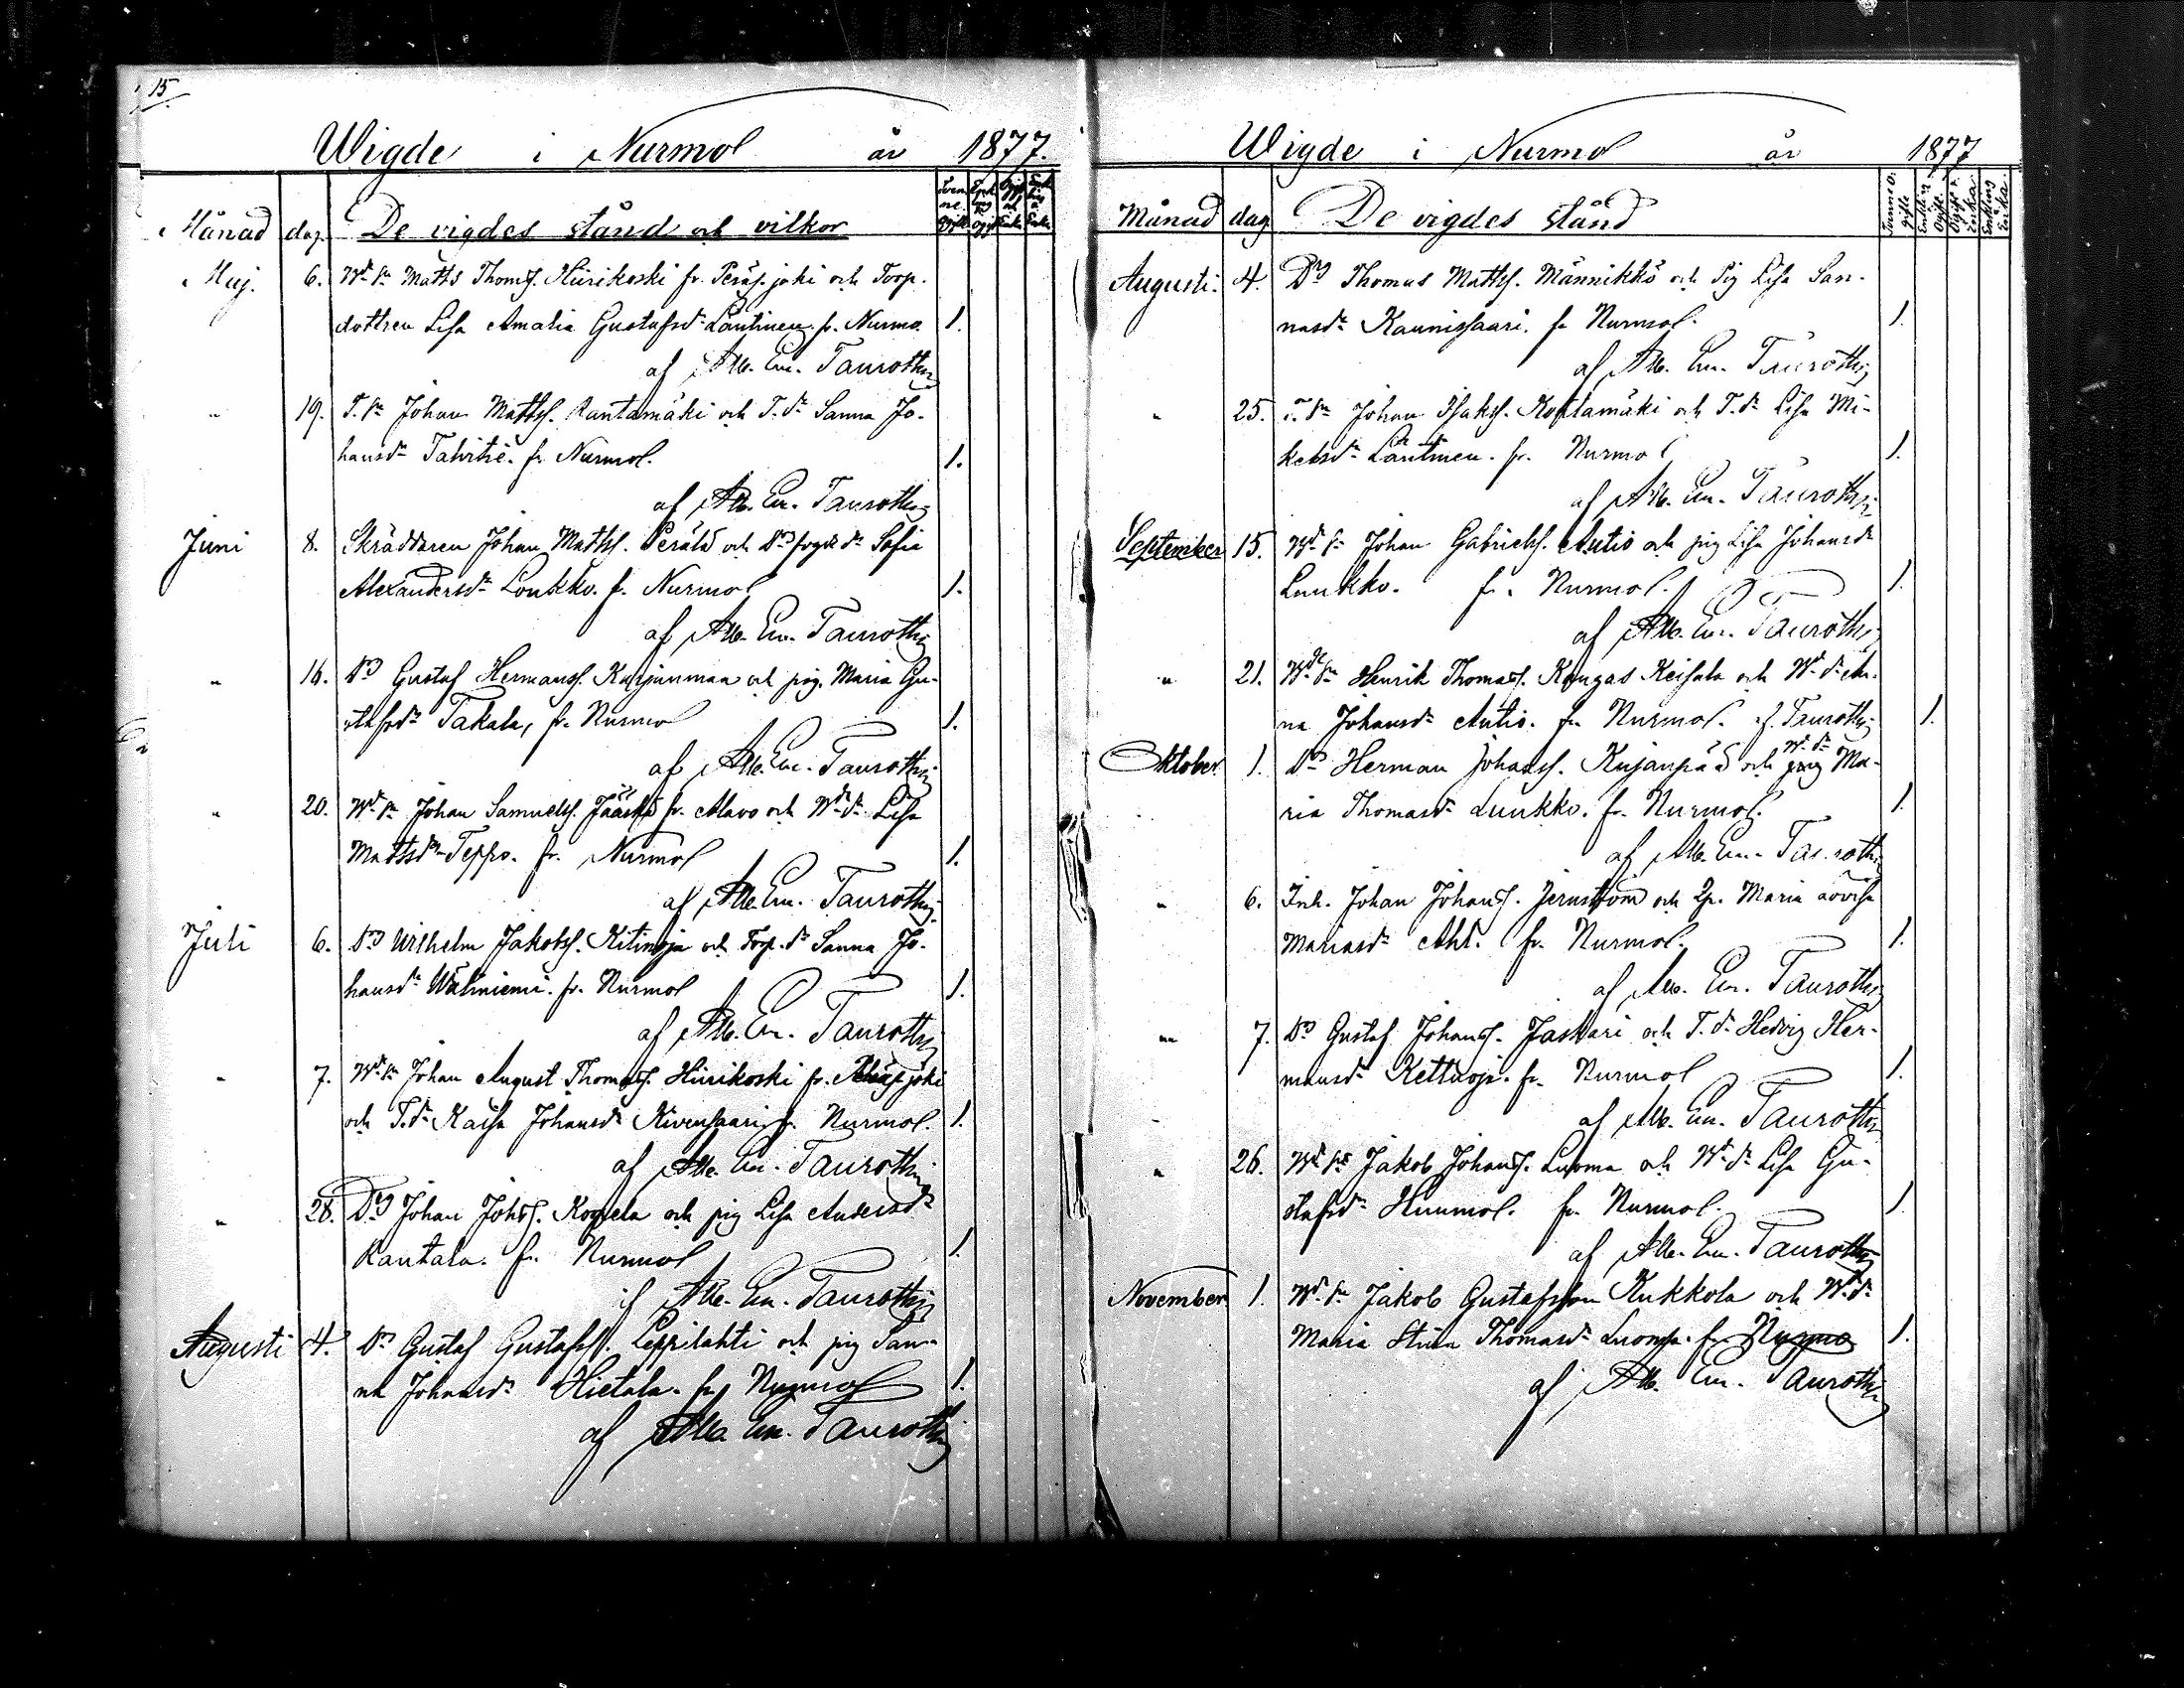 15
Wigde i Nurmo år 1877.
Månad dag. De vigdes stånd och vilkor
Maj. 6. Wd. sn Matts Thomss. Hiirikoski fr. Peräsjoki och Torp.
dottren Lisa Amalia Gustafsdr Lantinen fr. Nurmo. 1.
af Alb. Em. Tauroth
" 19. T. sn Johan Mattss. Rantamäki och T. dr Sanna Jo-
hansdr fr. Nurmo. 1.
af Alb. Em. Tauroth
Juni 8. Skräddaren Johan Mattss. Perälä och dr Sofia
Alexandersdr Loukko. fr. Nurmo 1.
af Alb. Em. Tauroth
" 16. Dr Gustaf Hermanss. Kurjenmaa och pig. Maria Gu-
stafsdr Takala, fr. Nurmo 1.
af Alb. Em. Tauroth
" 20. Wd. sn Johan Samuelss. Jääskä fr. Alavo och Wd. dr Lisa
Mattsdr Teppo. fr. Nurmo 1.
af Alb. Em. Tauroth
Juli 6. Dr Wilhelm Jakobss. Kitinoja och Torp. dr Sanna Jo-
hansdr Wäliniemi. fr. Nurmo 1.
af Alb. Em. Tauroth
" 7. Wd. sn Johan August Thomass. Hiirikoski fr.
och T. dr Kaisa Johansdr Kivensaari fr. Nurmo. 1.
af Alb. Em. Tauroth
" 28. Dr Johan Johss. och pig Lisa Andersdr
Rantala. fr. Nurmo 1.
af Alb. Em. Tauroth
Augusti 4. Dr Gustaf Gustafss. Leppilahti och pig San-
na Johansdr Hietala. fr. Nurmo 1.
af Alb. Em. Tauroth
Wigde i Nurmo år 1877
Månad dag De vigdes stånd
Augusti. 4. Dr Thomas Mattss. Männikkö och Pig Lisa San-
nasdr Kaunissaari. fr Nurmo. 1.
af Alb. Em. Tauroth
" 25. T. sn Johan Isakss. Koskamäki och T. dr Lisa Mi-
kelsdr Lantinen. fr. Nurmo 1.
af Alb. Em. Tauroth
September 15. Wd. sn Johan Gabrielss. Autio och pig Lisa Johansdr
Luukko. fr. Nurmo. 1.
af Alb. Em. Tauroth
" 21. Wd. sn Henrik Thomass. Kangas Keisala och Wd. dr An-
na Johansdr Autio. fr. Nurmo. af. Tauroth 1.
Oktober 1. Dr Herman Johanss. Kujanpää och Wd. dr Ma-
ria Thomasdr Luukko. fr. Nurmo. 1.
af Alb. Em. Tauroth
" 6. Inh. Johan Johanss. Jernström och Maria Lovisa
Mariasdr Aho. fr. Nurmo. 1.
af Alb. Em. Tauroth
" 7. Dr Gustaf Johanss. Jaskari och T. dr Hedvig Her-
mansdr Kettuoja. fr. Nurmo 1.
af Alb. Em. Tauroth
" 26. Wd. sn Jakob Johanss. Luoma och Wd. dr Lisa Gu-
stafsdr fr. Nurmo. 1
af Alb. Em. Tauroth
November 1. Wd. sn Jakob Gustafsson Kukkola och Wd. dr
Maria Stina Thomasdr Luoma. fr Nurmo 1.
af Alb. Em. Tauroth